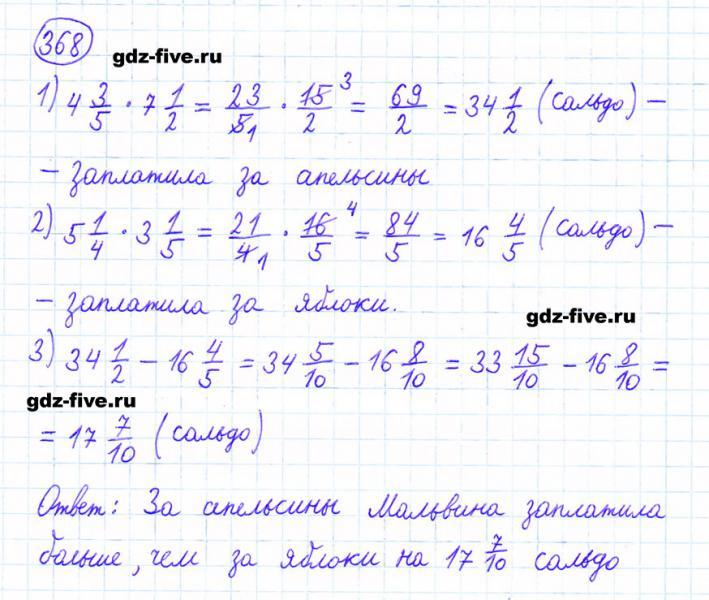 368
gdz-five.ru
1) 4 3/5 · 7 1/2 = 23/5 1 · 15 3/2 = 69/2 = 34 1/2 (сальдо) –
– заплатила за апельсины
2) 5 1/4 · 3 1/5 = 21/4 1 · 16 4/5 = 84/5 = 16 4/5 (сальдо) –
– заплатила за яблоки.
gdz-five.ru
3) 34 1/2 – 16 4/5 = 34 5/10 – 16 8/10 = 33 15/10 – 16 8/10 =
gdz-five.ru
= 17 7/10 (сальдо)
Ответ: За апельсины Мальвина заплатила
больше, чем за яблоки на 17 7/10 сальдо